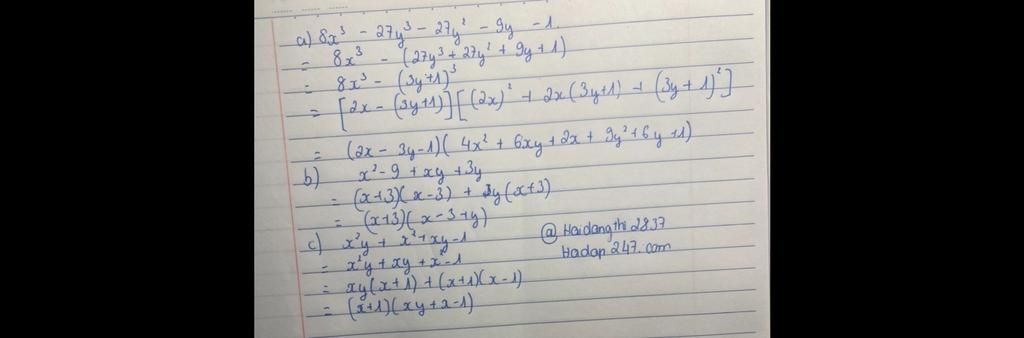 a) 8x³ - 27y³ - 27y² - 9y - 1.
= 8x³ - (27y³ + 27y² + 9y + 1)
= 8x³ - (3y+1)³
= [2x - (3y+1)][(2x)² + 2x(3y+1) + (3y+1)²]
= (2x - 3y-1)(4x² + 6xy + 2x + 9y² + 6y +1)
b) x² - 9 + xy + 3y
= (x+3)(x-3) + y(x+3)
= (x+3)(x-3+y)
c) x²y + x² + xy - 1
= x²y + xy + x² - 1
= xy(x+1) + (x+1)(x-1)
= (x+1)(xy+x-1)
@ Haidangthi2837
Hadap 247.com